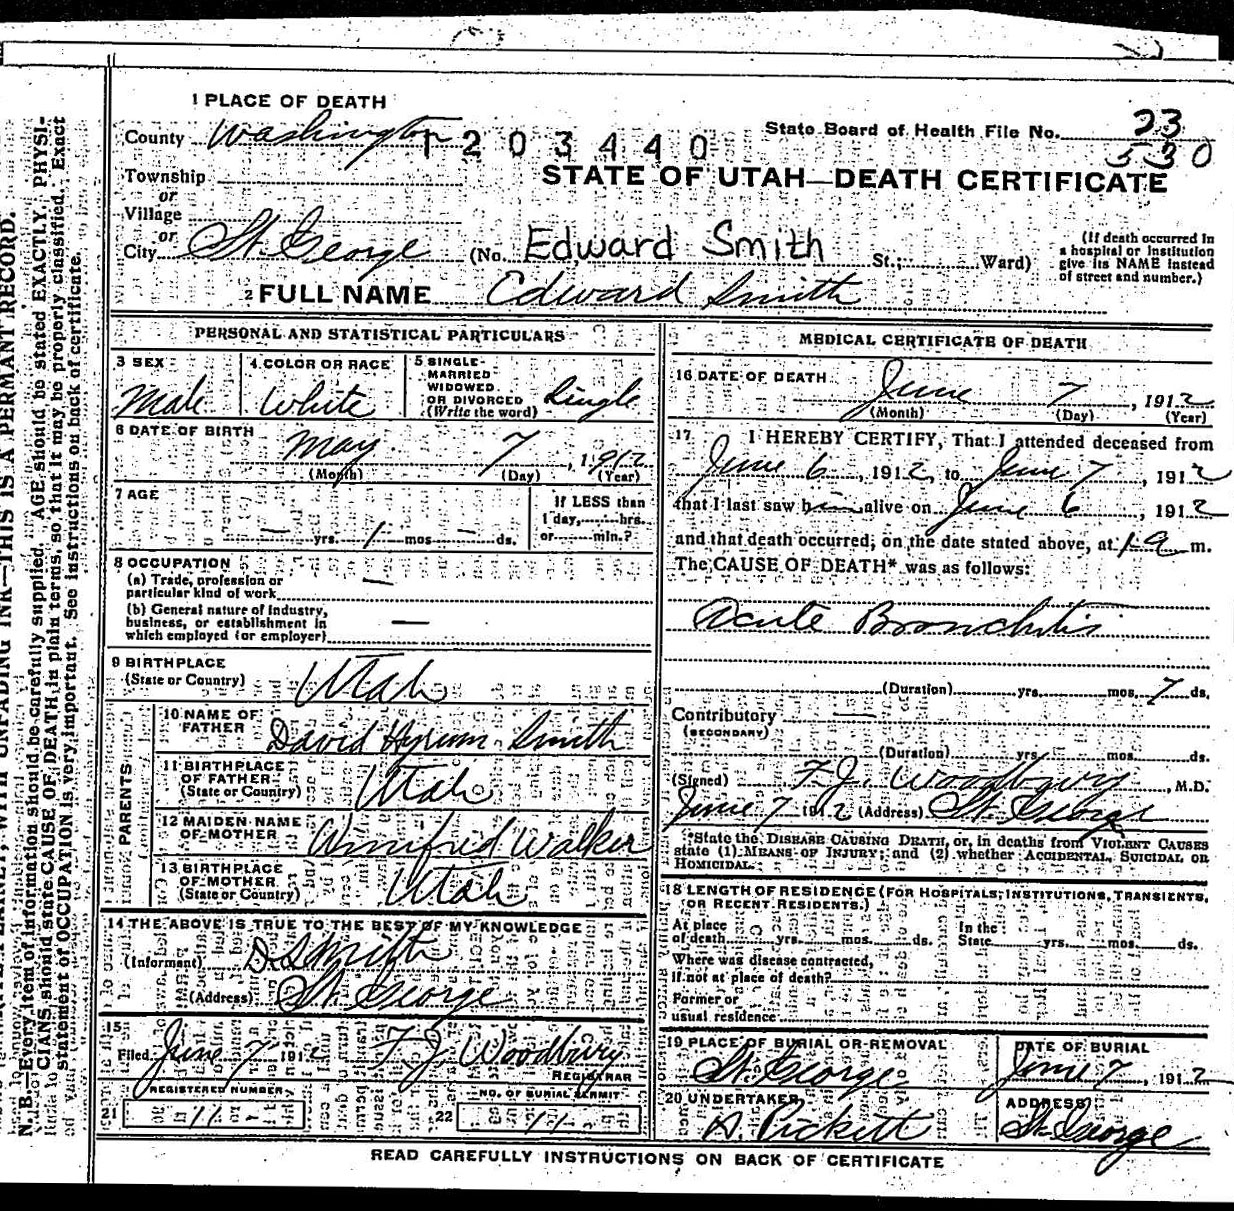 1 PLACE OF DEATH
County Washington
1203440
State Board of Health File No. 23
530
Township
or
Village
or
City St. George
STATE OF UTAH—DEATH CERTIFICATE
(No. Edward Smith St.; Ward)
(If death occurred in a hospital or institution give its NAME instead of street and number.)
2 FULL NAME Edward Smith
PERSONAL AND STATISTICAL PARTICULARS
3 SEX Male
4 COLOR OR RACE White
5 SINGLE MARRIED WIDOWED OR DIVORCED (Write the word) Single
6 DATE OF BIRTH
May 7, 1912
(Month) (Day) (Year)
7 AGE
— yrs. 1 mos. — ds.
If LESS than
1 day, hrs.
or min.?
8 OCCUPATION
(a) Trade, profession or
particular kind of work —
(b) General nature of industry,
business, or establishment in
which employed (or employer) —
9 BIRTHPLACE
(State or Country) Utah
PARENTS
10 NAME OF
FATHER David Hyrum Smith
11 BIRTHPLACE
OF FATHER
(State or Country) Utah
12 MAIDEN NAME
OF MOTHER Winifred Walker
13 BIRTHPLACE
OF MOTHER
(State or Country) Utah
14 THE ABOVE IS TRUE TO THE BEST OF MY KNOWLEDGE
(Informant) D. Smith
(Address) St. George
15
Filed June 7 1912 F. J. Woodbury
REGISTRAR
REGISTERED NUMBER
21 11
NO. OF BURIAL PERMIT
22 11
MEDICAL CERTIFICATE OF DEATH
16 DATE OF DEATH
June 7, 1912
(Month) (Day) (Year)
17 I HEREBY CERTIFY, That I attended deceased from
June 6, 1912, to June 7, 1912
that I last saw him alive on June 6, 1912
and that death occurred, on the date stated above, at 1 a m.
The CAUSE OF DEATH* was as follows:
Acute Bronchitis
(Duration) yrs. mos. 7 ds.
Contributory —
(SECONDARY)
(Duration) yrs. mos. ds.
(Signed) F. J. Woodbury, M.D.
June 7 1912 (Address) St. George
*State the DISEASE CAUSING DEATH, or, in deaths from VIOLENT CAUSES
state (1) MEANS OF INJURY; and (2) whether ACCIDENTAL, SUICIDAL OR
HOMICIDAL.
18 LENGTH OF RESIDENCE (FOR HOSPITALS, INSTITUTIONS, TRANSIENTS,
OR RECENT RESIDENTS.)
At place
of death yrs. mos. ds.
In the
State yrs. mos. ds.
Where was disease contracted,
if not at place of death?
Former or
usual residence
19 PLACE OF BURIAL OR REMOVAL
St. George
DATE OF BURIAL
June 7, 1912
20 UNDERTAKER
A. Pickett
ADDRESS
St. George
READ CAREFULLY INSTRUCTIONS ON BACK OF CERTIFICATE
WITH UNFADING INK—THIS IS A PERMANT RECORD.
N. B.—Every item of information should be carefully supplied. AGE should be stated EXACTLY. PHYSI-
CIANS should state CAUSE OF DEATH in plain terms, so that it may be properly classified. Exact
statement of OCCUPATION is very important. See instructions on back of certificate.